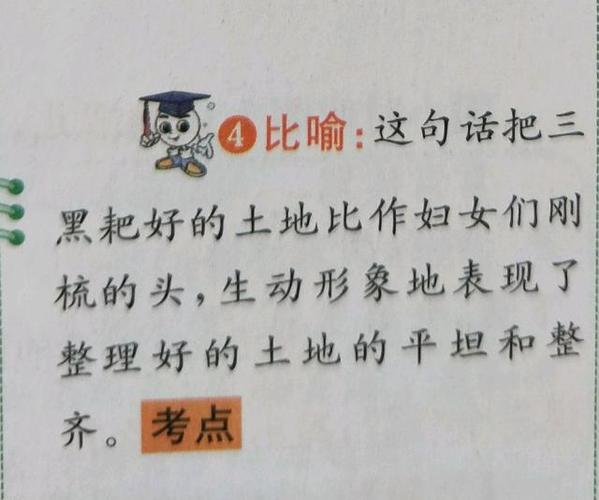 ④比喻：这句话把三
黑耙好的土地比作妇女们刚
梳的头，生动形象地表现了
整理好的土地的平坦和整
齐。考点